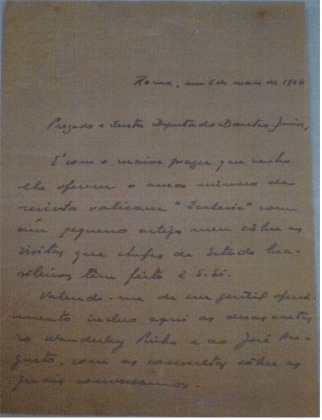 Roma, em 6 de maio de 19
Prezado e ilustre Deputado Dantas Junior,
É com o maior prazer que venho
lhe oferecer o anexo número da
revista vaticana "Ecclesia" com
um pequeno artigo meu sôbre as
visitas que chefes de Estado bra-
sileiros têm feito à S. Sé.
Valendo-me de seu gentil ofereci-
mento incluo aqui as duas cartas
ao Wanderley Pinho e ao José Au-
gusto, com as consultas sôbre as
quais conversamos.